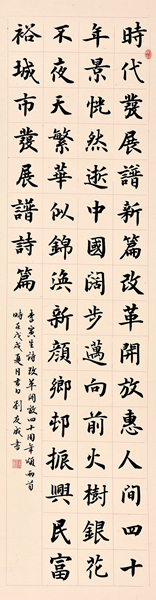 時代發展譜新篇改革開放惠人間四十
年景恍然逝中國闊步邁向前火樹銀花
不夜天繁華似錦渙新顏鄉邨振興民富
裕城市發展譜詩篇
李寅生詩改革開放四十周年頌两首
時在戊戌夏月吉日劉友成書